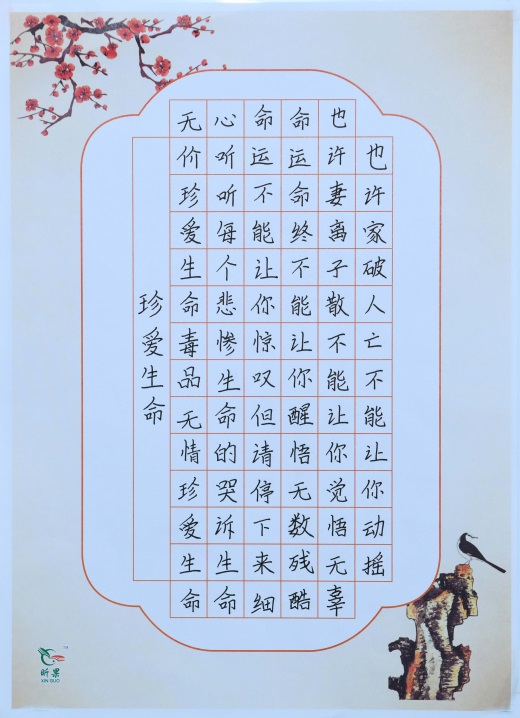 也许家破人亡不能让你动摇
也许妻离子散不能让你觉悟无辜
命运命终不能让你醒悟无数残酷
命运不能让你惊叹但请停下来细
心听听每个悲惨生命的哭诉生命
无价珍爱生命毒品无情珍爱生命
珍爱生命
昕果
XIN GUO